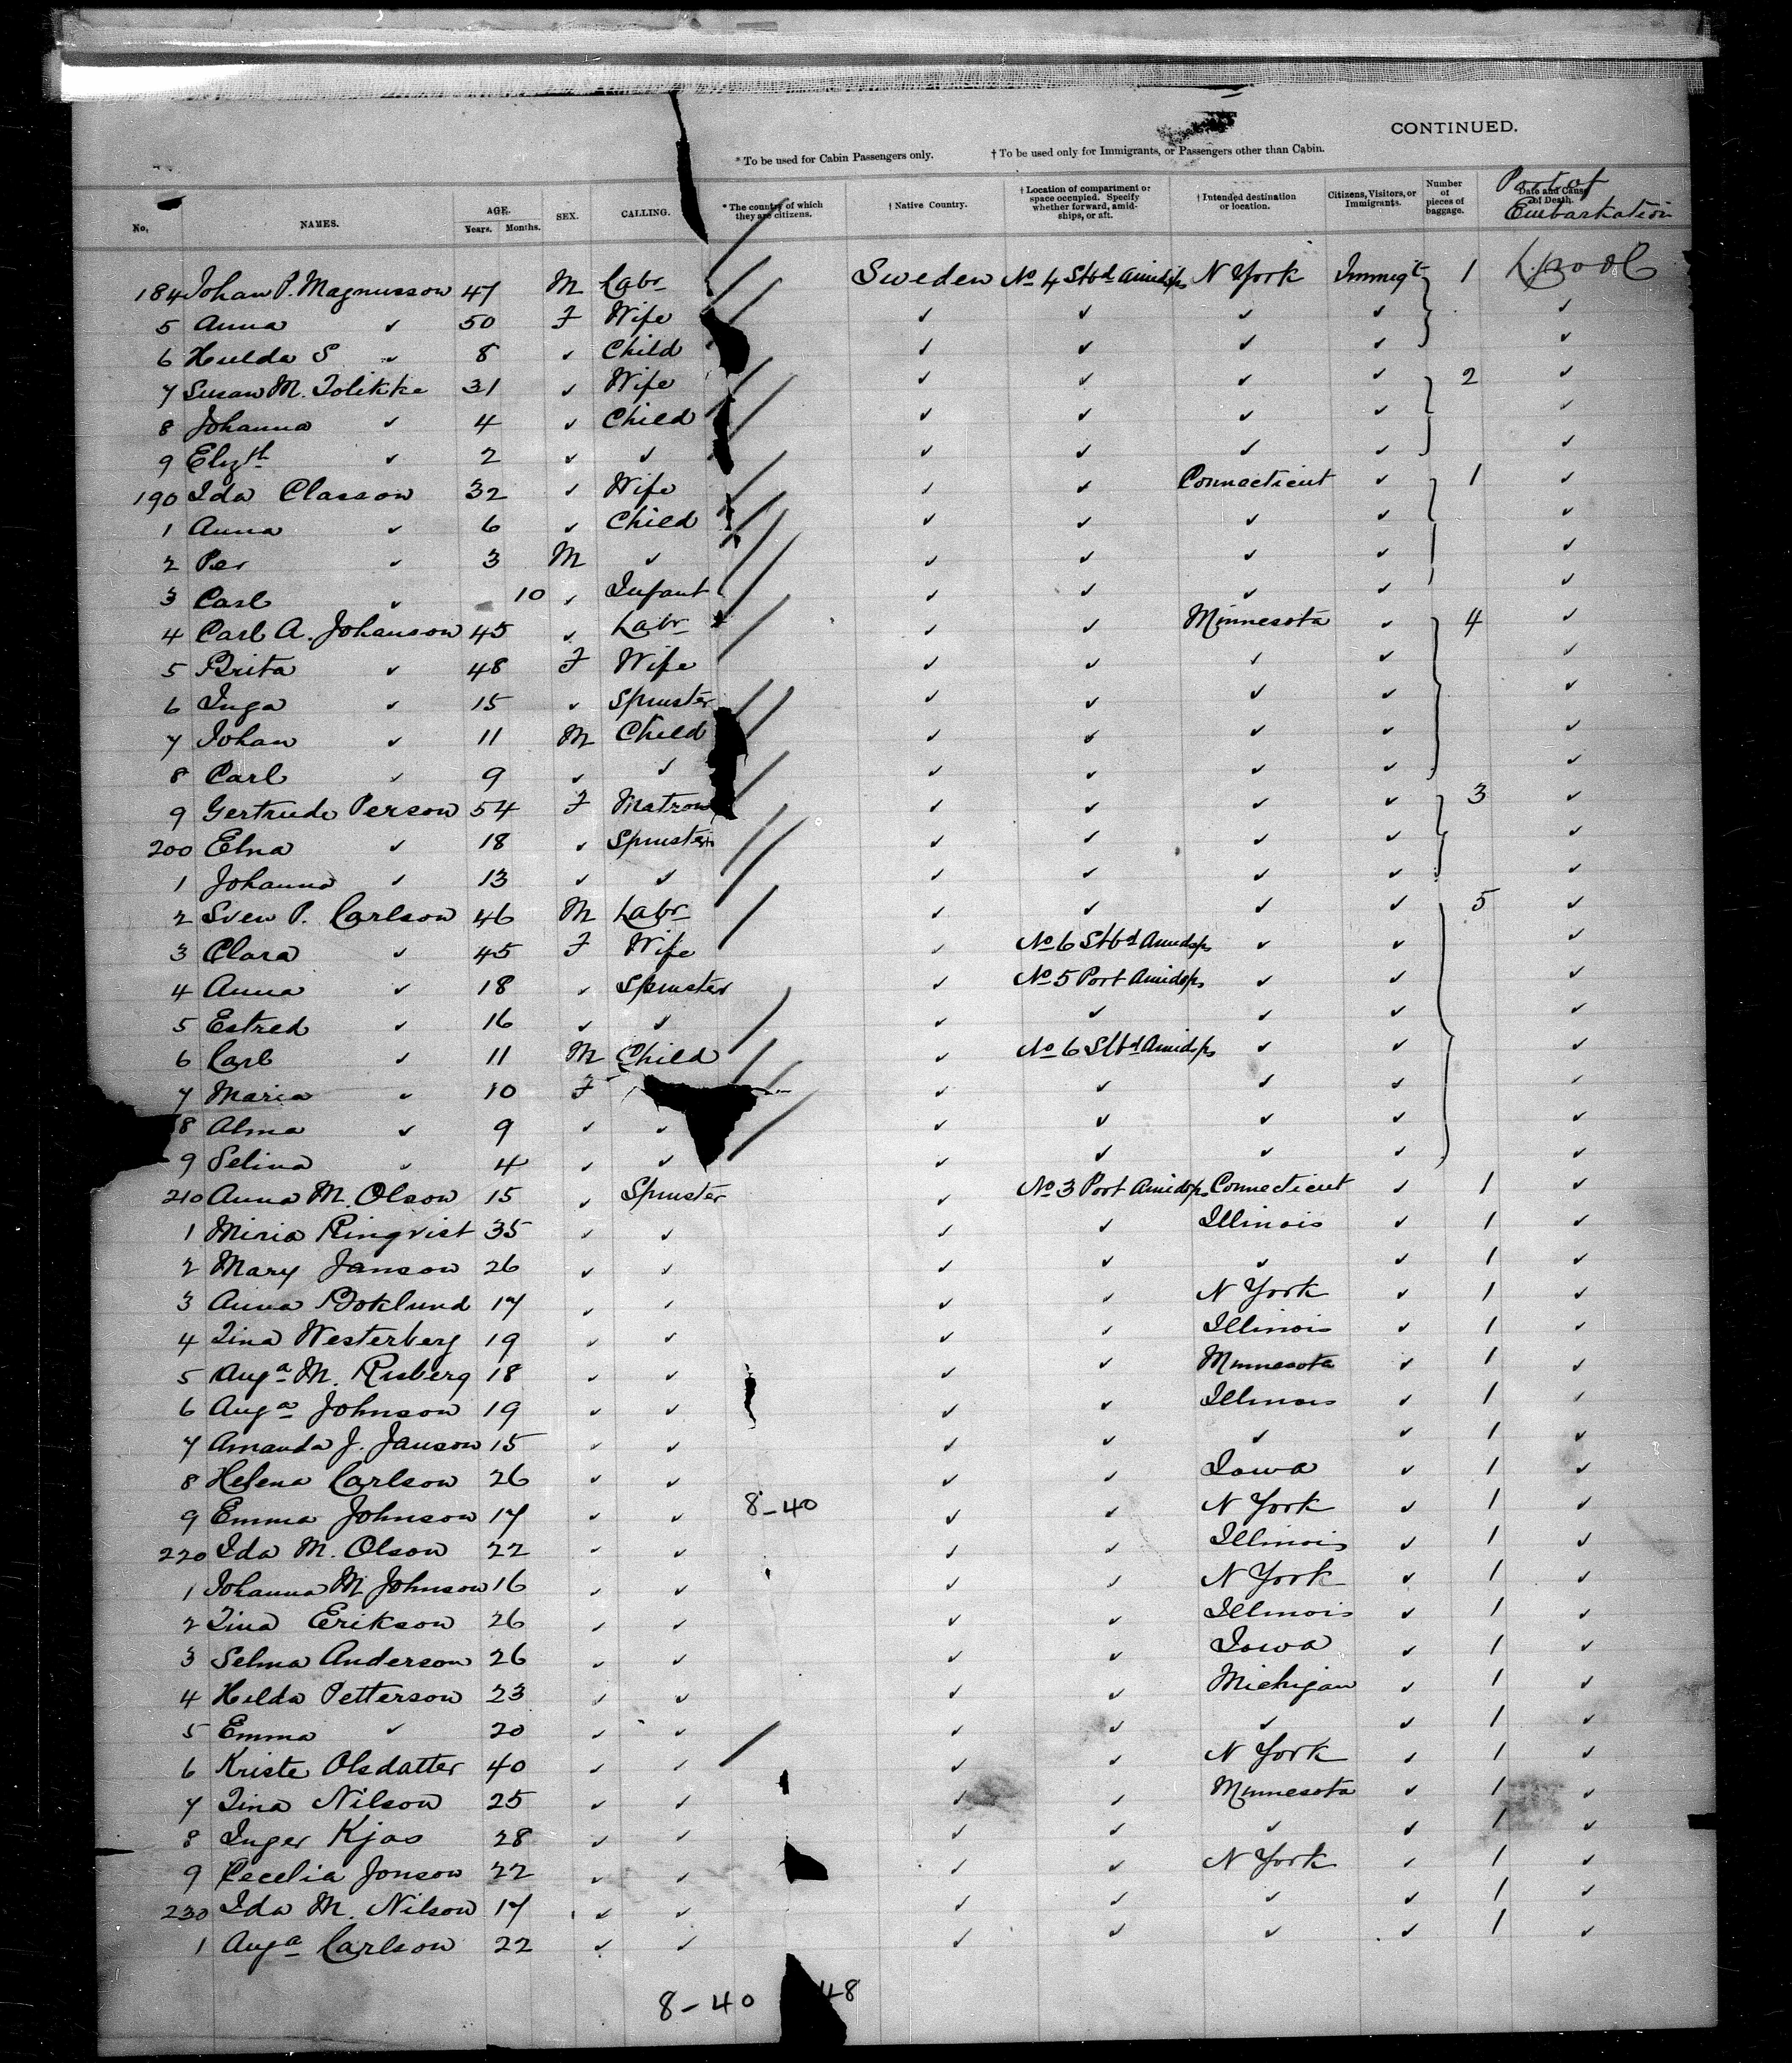 CONTINUED.
* To be used for Cabin Passengers only. † To be used only for Immigrants, or Passengers other than Cabin.
No. NAMES. AGE. Years. Months. SEX. CALLING. * The country of which they are citizens. † Native Country. † Location of compartment or space occupied. Specify whether forward, amidships, or aft. † Intended destination or location. Citizens, Visitors, or Immigrants. Number of pieces of baggage. Date and Cause of Death. Port of Embarkation
184 Johan P. Magnusson 47 M Labr Sweden No 4 Stbd Amidsps N York Immigt 1 L.pool
5 Anna ✓ 50 F Wife ✓ ✓ ✓ ✓ ✓
6 Hulda S ✓ 8 ✓ Child ✓ ✓ ✓ ✓ ✓
7 Susan M. Tolikke 31 ✓ Wife ✓ ✓ ✓ ✓ 2 ✓
8 Johanna ✓ 4 ✓ Child ✓ ✓ ✓ ✓ ✓
9 Elizth ✓ 2 ✓ ✓ ✓ ✓ ✓ ✓ ✓
190 Ida Classon 32 ✓ Wife ✓ ✓ Connecticut ✓ 1 ✓
1 Anna ✓ 6 ✓ Child ✓ ✓ ✓ ✓ ✓
2 Per ✓ 3 M ✓ ✓ ✓ ✓ ✓ ✓
3 Carl ✓ 10 ✓ Infant ✓ ✓ ✓ ✓ ✓
4 Carl A. Johanson 45 ✓ Labr ✓ ✓ Minnesota ✓ 4 ✓
5 Brita ✓ 48 F Wife ✓ ✓ ✓ ✓ ✓
6 Inga ✓ 15 ✓ Spinster ✓ ✓ ✓ ✓ ✓
7 Johan ✓ 11 M Child ✓ ✓ ✓ ✓ ✓
8 Carl ✓ 9 ✓ ✓ ✓ ✓ ✓ ✓ ✓
9 Gertrude Person 54 F Matron ✓ ✓ ✓ ✓ 3 ✓
200 Elna ✓ 18 ✓ Spinster ✓ ✓ ✓ ✓ ✓
1 Johanna ✓ 13 ✓ ✓ ✓ ✓ ✓ ✓ ✓
2 Sven P. Carlson 46 M Labr ✓ ✓ ✓ ✓ 5 ✓
3 Clara ✓ 45 F Wife ✓ No 6 Stbd Amidsps ✓ ✓ ✓
4 Anna ✓ 18 ✓ Spinster ✓ No 5 Port Amidsps ✓ ✓ ✓
5 Estred ✓ 16 ✓ ✓ ✓ ✓ ✓ ✓ ✓
6 Carl ✓ 11 M Child ✓ No 6 Stbd Amidsps ✓ ✓ ✓
7 Maria ✓ 10 F ✓ ✓ ✓ ✓ ✓
8 Alma ✓ 9 ✓ ✓ ✓ ✓ ✓ ✓ ✓
9 Selina ✓ 4 ✓ ✓ ✓ ✓ ✓ ✓ ✓
210 Anna M. Olson 15 ✓ Spinster ✓ No 3 Port Amidsps Connecticut ✓ 1 ✓
1 Miria Ringvist 35 ✓ ✓ ✓ ✓ Illinois ✓ 1 ✓
2 Mary Janson 26 ✓ ✓ ✓ ✓ ✓ ✓ 1 ✓
3 Anna Boklund 17 ✓ ✓ ✓ ✓ N York ✓ 1 ✓
4 Tina Westerberg 19 ✓ ✓ ✓ ✓ Illinois ✓ 1 ✓
5 Auga M. Risberg 18 ✓ ✓ ✓ ✓ Minnesota ✓ 1 ✓
6 Auga Johnson 19 ✓ ✓ ✓ ✓ Illinois ✓ 1 ✓
7 Amanda J. Janson 15 ✓ ✓ ✓ ✓ ✓ ✓ 1 ✓
8 Helena Carlson 26 ✓ ✓ ✓ ✓ Iowa ✓ 1 ✓
9 Emma Johnson 17 ✓ ✓ 8-40 ✓ ✓ N York ✓ 1 ✓
220 Ida M. Olson 22 ✓ ✓ ✓ ✓ Illinois ✓ 1 ✓
1 Johanna M Johnson 16 ✓ ✓ ✓ ✓ N York ✓ 1 ✓
2 Tina Erikson 26 ✓ ✓ ✓ ✓ Illinois ✓ 1 ✓
3 Selma Anderson 26 ✓ ✓ ✓ ✓ Iowa ✓ 1 ✓
4 Hilda Petterson 23 ✓ ✓ ✓ ✓ Michigan ✓ 1 ✓
5 Emma ✓ 20 ✓ ✓ ✓ ✓ ✓ ✓ 1 ✓
6 Kriste Olsdatter 40 ✓ ✓ ✓ ✓ N York ✓ 1 ✓
7 Tina Nilson 25 ✓ ✓ ✓ ✓ Minnesota ✓ 1 ✓
8 Inger Kjas 28 ✓ ✓ ✓ ✓ ✓ ✓ 1 ✓
9 Cecelia Jonson 22 ✓ ✓ ✓ ✓ N York ✓ 1 ✓
230 Ida M. Nilson 17 ✓ ✓ ✓ ✓ ✓ ✓ 1 ✓
1 Auga Carlson 22 ✓ ✓ ✓ ✓ ✓ ✓ 1 ✓
8-40 48